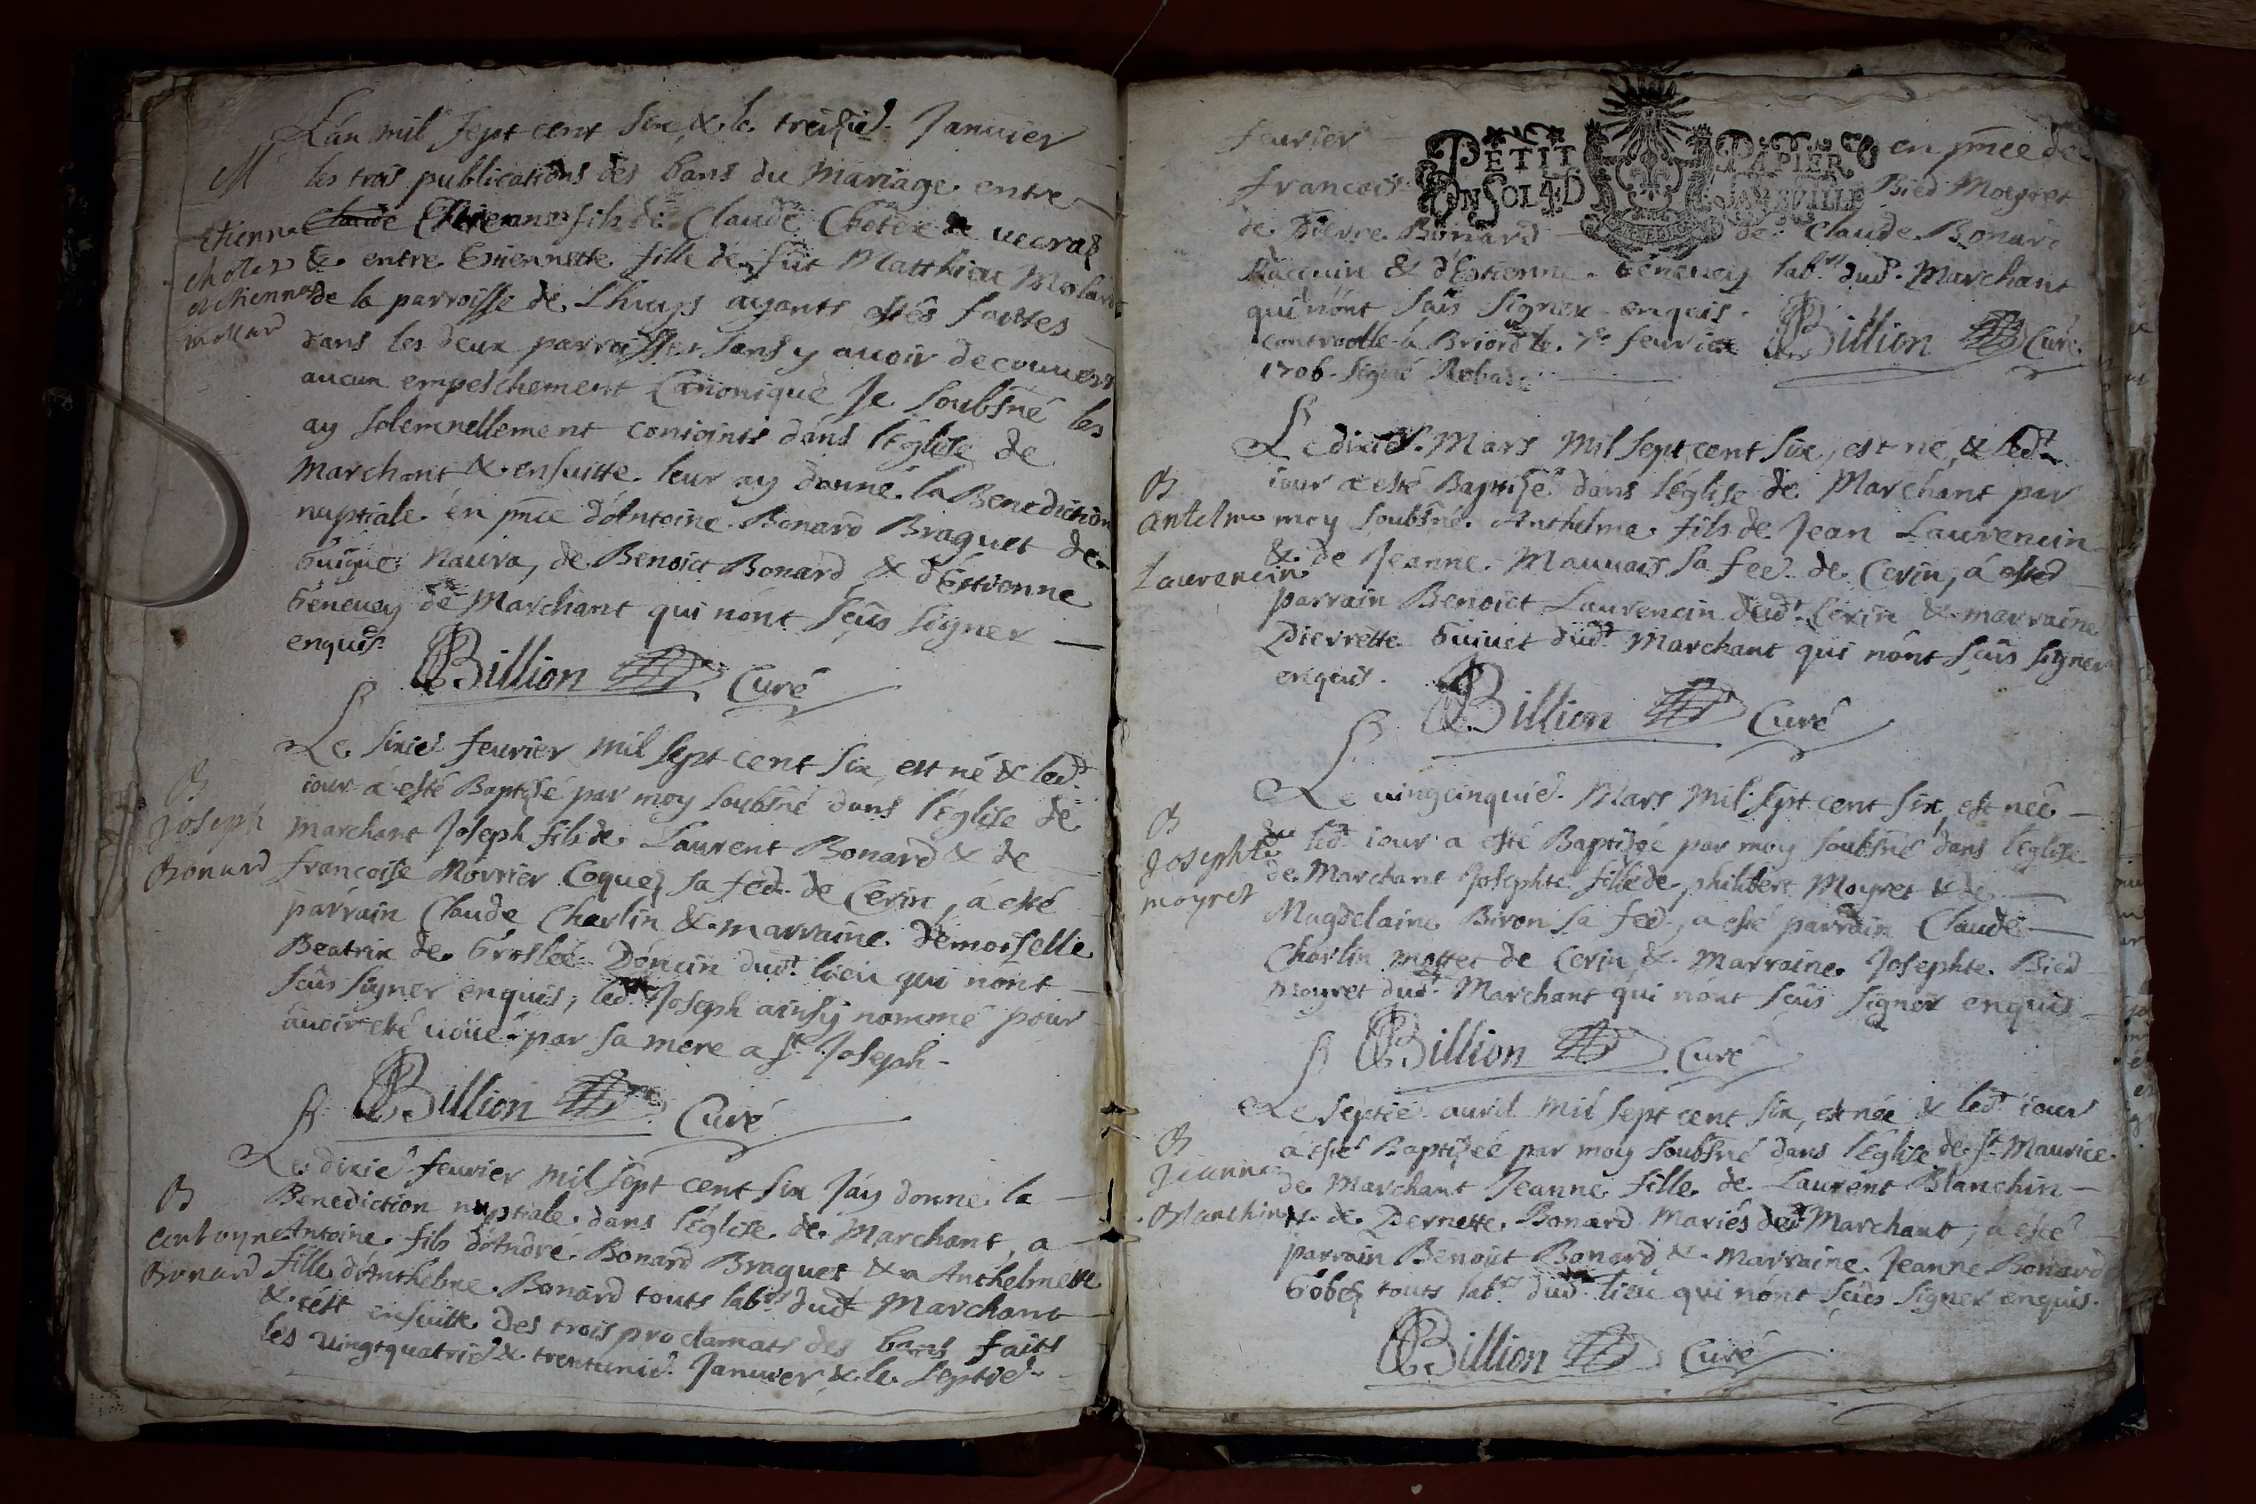 L'an mil sept cent six, & le treisie Januier
M
les trois publications des bans du mariage entre
Claude Estienne fils de Claude Choter de uecra
Etienne
choter
& entre Estiennette fille de fût Matthieu Molard
et etiennette
molard
de la parroisse de Lhuys ayants estés faittes
dans les deux parroisses sans y auoir decouuert
aucun empeschement Canonique Je soubsné les
ay solemnellement conioints dans l'Eglise de
Marchant & ensuitte leur ay donné la Benediction
nuptiale en pnce d'Antoine Bonard Braguet de
Guigue Naura, de Benoict Bonard & d'Estienne
Geneuey de Marchant qui n'ont sçûs signer
enquis.
Billion Curé
Le sixie feurier mil sept cent six, est né & led
B
Joseph
Bonard
iour a esté Baptisé par moy soubsné dans l'Eglise de
Marchant Joseph fils de Laurent Bonard & de
francoise Morrier Coquez sa fee de Cerin, a esté
parrain Claude Charlin & marraine demoiselle
Beatrix de Groslée Doncin dud. lieu qui n'ont
sçûs signer enquis, led. Joseph ainsy nommé pour
auoir eté uoüé par sa mere a St Joseph.
Billion Curé
Le dixie feurier mil sept cent six J'ay donné la
B
antoyne
Bonard
Benediction nuptiale dans l'Eglise de Marchant, a
Antoine fils d'André Bonard Braguet & a Anthelmette
fille d'Anthelme Bonard touts labrs dud. Marchant
& c'est ensuitte des trois proclamats des bans faits
les uingtquatrie & trentunie Januier & le septie
PETIT PAPIER
UN SOL 4 D LA FEUILLE
feurier en pnce de
francois Bied Moyret
de Pierre Bonard de Claude Bonard
Racquin & d'Estienne Geneuey labrs dud. Marchant
qui n'ont sçûs signer enquis.
controollé à Briord le 7e feurier
1706. signé Robade
Billion Curé
Le dixie Mars mil sept cent six, est né & led
B
antelme
Laurencin
iour a esté Baptisé dans l'Eglise de Marchant par
moy soubsné Anthelme fils de Jean Laurencin
& de Jeanne Mauuais sa fee de Cerin, a esté
parrain Benoict Laurencin dud. Cerin & marraine
Pierrette Guiuet dud. Marchant qui n'ont sçûs signer
enquis.
Billion Curé
Le uingcinquie Mars mil sept cent six, est née
B
Josephte
moyret
& led. iour a esté Baptisée par moy soubsné dans l'Eglise
de Marchant Josephte fille de philibert Moyret & de
Magdelaine Biron sa fee, a esté parrain Claude
Charlin mottet de Cerin & Marraine Josephte Bied
moyret dud. Marchant qui n'ont sçûs signer enquis
Billion Curé
Le septie auril mil sept cent six, est née & led. iour
B
Jeanne
Blanchin
a esté Baptisée par moy soubsné dans l'Eglise de St Maurice
de Marchant Jeanne fille de Laurent Blanchin
& de Pernette Bonard Mariés dud. Marchant, a esté
parrain Benoict Bonard & Marraine Jeanne Bonard
Gobey touts labrs dud. lieu qui n'ont sçûs signer enquis.
Billion Curé